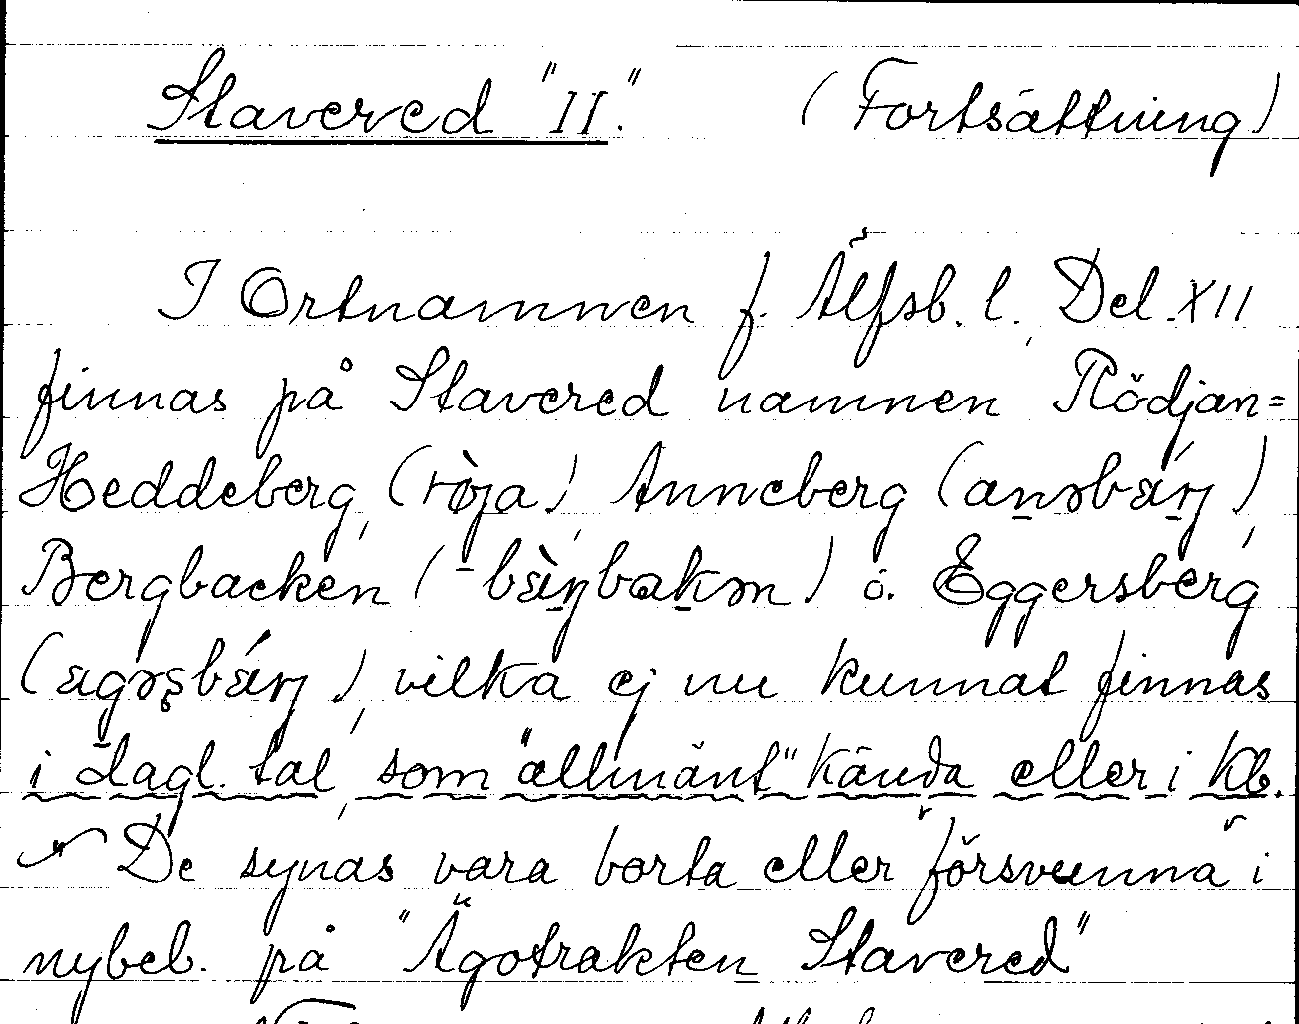 Stavered "II." (Fortsättning)
I Ortnamnen f. Älfsb. l. Del. XII
finnas på Stavered namnen Rödjan=
Heddeberg, (rö̀ja), Anneberg (anəbǽrj),
Bergbacken (-bæ̀rjbakən) o. Eggersberg
(ægəʂbǽrj), vilka ej nu kunnat finnas
i dagl. tal, som "allmänt" kända eller i kb.
De synas vara borta eller "försvunna" i
nybeb. på "Ägotrakten Stavered"